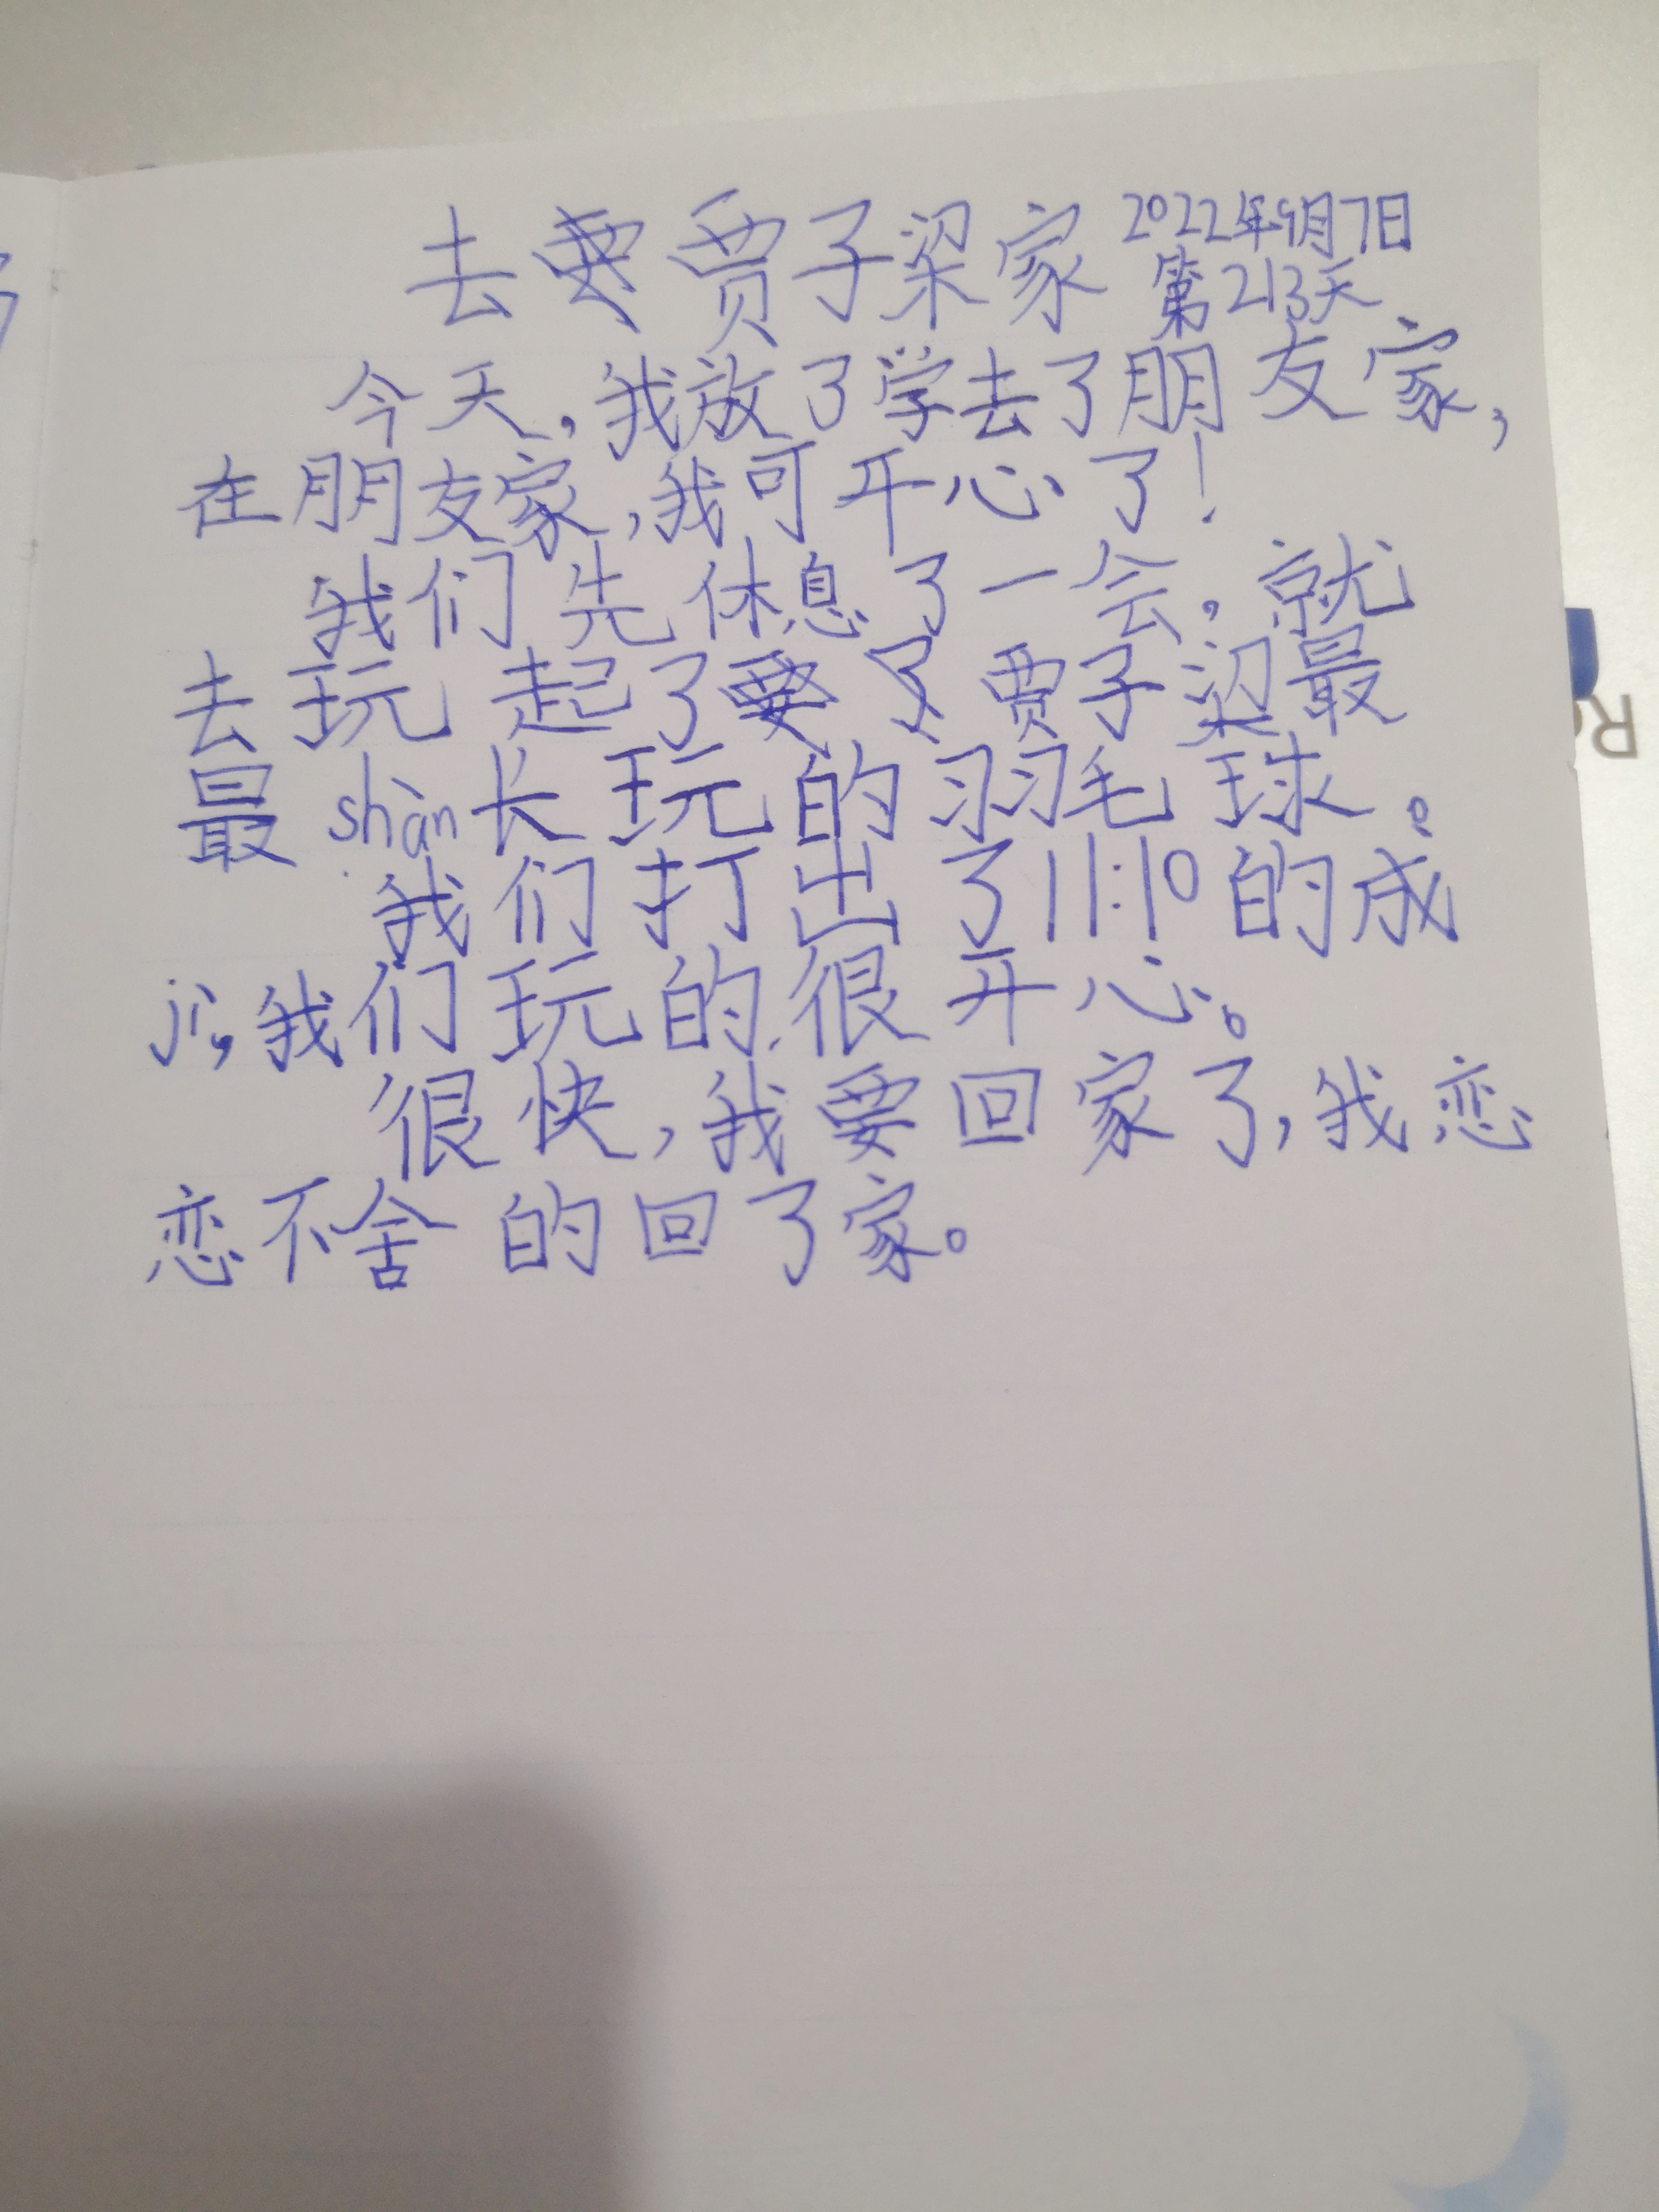 去贾子梁家 2022年9月7日
第213天
今天,我放了学去了朋友家,
在朋友家,我可开心了!
我们先休息了一会,就
去玩起了贾子梁最
最shàn长玩的羽毛球。
我们打出了11:10的成
jì,我们玩的很开心。
很快,我要回家了,我恋
恋不舍的回了家。